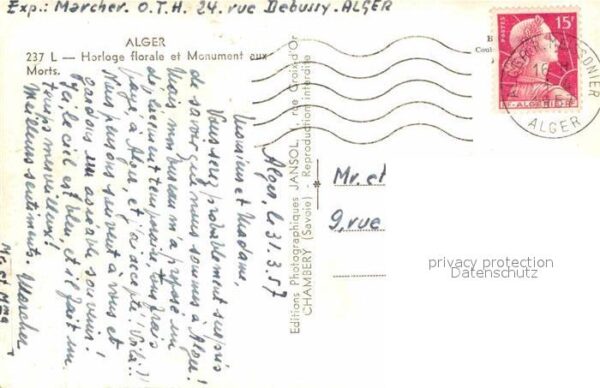 Exp.: Marcher. O.T.H. 24. rue Debussy. ALGER
ALGER
237 L — Horloge florale et Monument aux
Morts.
Alger, le 31.3.57
Monsieur et Madame,
Vous serez probablement surpris
de savoir que nous sommes à Alger!
Mais mon bureau m'a proposé un
déplacement temporaire tous frais
payés à Alger, et j'ai accepté! Voilà!!
Nous pensons souvent à vous et
gardons un agréable souvenir!
Ici le ciel est bleu, et il fait un
temps merveilleux!
Meilleurs sentiments. Marcher
Mr et Mme
Editions Photographiques JANSOL, rue Croix-d'Or
CHAMBERY (Savoie) - Reproduction interdite
Mr. et
9, rue
POSTES
15F
ALGERIE
16
ALGER
privacy protection
Datenschutz